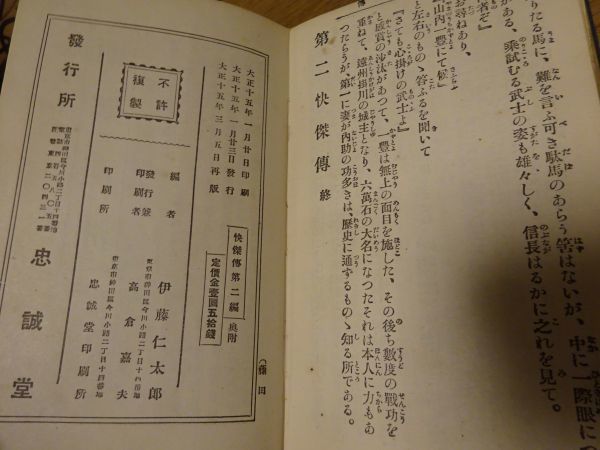 りたる馬に、難を言ふ可き駄馬のあらう筈はないが、中に一際眼につ
がある、乘試むる武士の姿も雄々しく、信長はるかに之れを見て。
者ぞ』
お尋ねあり、
山内一豐にて候』
と左右のもの、答ふるを聞いて
『さても心掛けの武士よ』
と感賞の沙汰があつて、一豐は無上の面目を施した、その後ち數度の戰功を
重ねて、遠州掛川の城主となり、六萬石の大名になつたそれは本人に力もあ
つたらうが、第一に妻が内助の功多きは、歷史に通ずるものゝ知る所である。
第二快傑傳 終
大正十五年一月廿日印刷
大正十五年一月廿三日發行
大正十五年三月五日再版
快傑傳第二編 奥附
定價金壹圓五拾錢
不許複製
編者 伊藤仁太郎
發行兼印刷者 東京市神田區今川小路二丁目十四番地 高倉嘉夫
印刷所 東京市神田區今川小路二丁目十四番地 忠誠堂印刷所
發行所 東京市神田區今川小路二丁目十四番地 忠誠堂